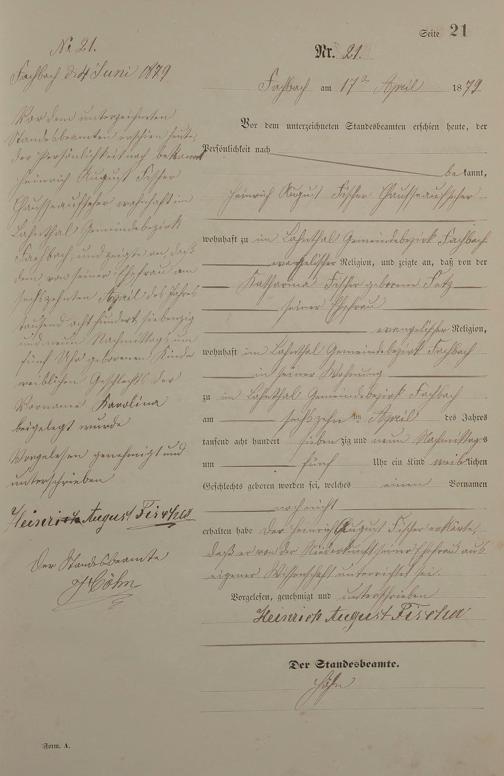 Seite 21
Nr. 21.
Fachbach am 17ten April 1879
Vor dem unterzeichneten Standesbeamten erschien heute, der
Persönlichkeit nach
bekannt,
Heinrich August Fischer Chausseeaufseher
wohnhaft zu im Lahnthal Gemeindebezirk Fachbach
evangelischer Religion, und zeigte an, daß von der
Katharina Fischer geborene
seiner Ehefrau
evangelischer Religion,
wohnhaft im Lahnthal Gemeindebezirk Fachbach
in seiner Wohnung
zu im Lahnthal Gemeindebezirk Fachbach
am sechszehnten April des Jahres
tausend acht hundert siebenzig und neun Nachmittags
um fünf Uhr ein Kind weiblichen
Geschlechts geboren worden sei, welches einen Vornamen
noch nicht
erhalten habe Der Heinrich August Fischer erklärte,
daß er von der Niederkunft seiner Ehefrau aus
eigener Wissenschaft unterrichtet sei.
Vorgelesen, genehmigt und unterschrieben
Heinrich August Fischer
Der Standesbeamte.
Höhn
No 21.
Fachbach d. 4 Juni 1879
Vor dem unterzeichneten
Standesbeamten erschien heute,
der Persönlichkeit nach bekannt
Heinrich August Fischer
Chausseeaufseher wohnhaft im
Lahnthal Gemeindebezirk
Fachbach und zeigte an, daß
dem von seiner Ehefrau am
sechszehnten April des Jahres
tausend acht hundert siebenzig
und neun Nachmittags um
fünf Uhr geborenen Kinde
weiblichen Geschlechts der
Vorname Karolina
beigelegt wurde
Vorgelesen genehmigt und
unterschrieben
Heinrich August Fischer
Der Standesbeamte
Höhn
Form. A.